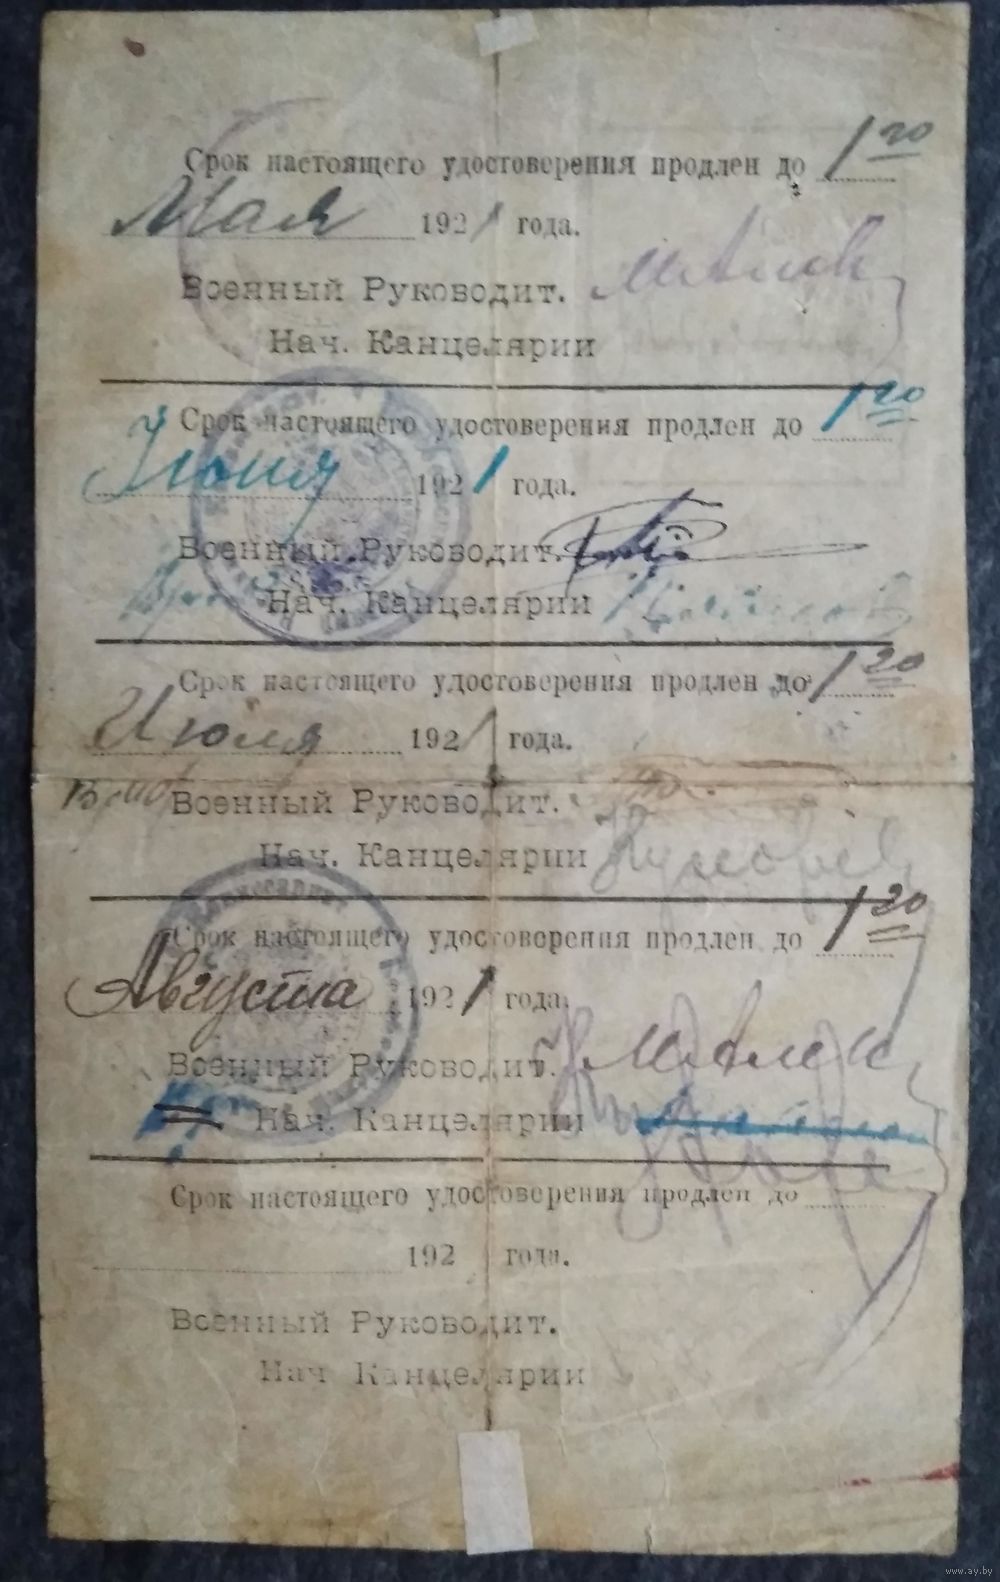 Срок настоящего удостоверения продлен до 1го
Мая 1921 года.
Военный Руководит.
Нач. Канцелярии
Срок настоящего удостоверения продлен до 1го
Июня 1921 года.
Военный Руководит.
Нач. Канцелярии
Срок настоящего удостоверения продлен до 1го
Июля 1921 года.
Военный Руководит.
Нач. Канцелярии
Срок настоящего удостоверения продлен до 1го
Августа 1921 года.
Военный Руководит.
Нач. Канцелярии
Срок настоящего удостоверения продлен до
192 года.
Военный Руководит.
Нач. Канцелярии
www.ay.by